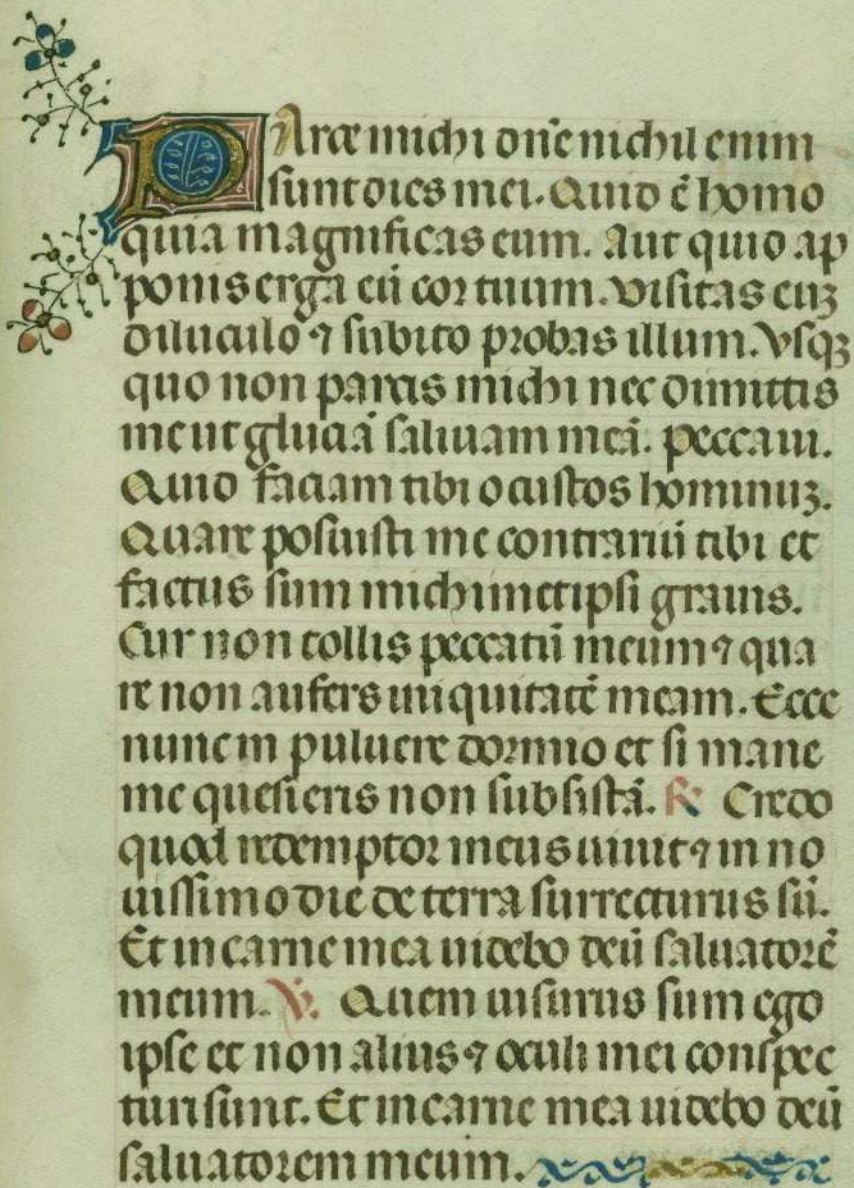 PArce michi dñe nichil enim
sunt dies mei. Quid ẽ homo
quia magnificas eum. Aut quid ap
ponis erga eũ cor tuum. visitas euʒ
diluculo ⁊ subito probas illum. Vsqʒ
quo non parcis michi nec dimittis
me ut gluciã saliuam meã. peccaui.
Quid faciam tibi o custos hominuʒ.
Quare posuisti me contrariũ tibi et
factus sum michimetipsi grauis.
Cur non tollis peccatũ meum ⁊ qua
re non aufers iniquitatẽ meam. Ecce
nunc in puluere dormio et si mane
me quesieris non subsistã. ℟ Credo
quod redemptor meus uiuit ⁊ in no
uissimo die de terra surrecturus sũ.
Et in carne mea uidebo deũ saluatorẽ
meum. ℣. Quem uisurus sum ego
ipse et non alius ⁊ oculi mei conspec
turi sunt. Et in carne mea uidebo deũ
saluatorem meum.